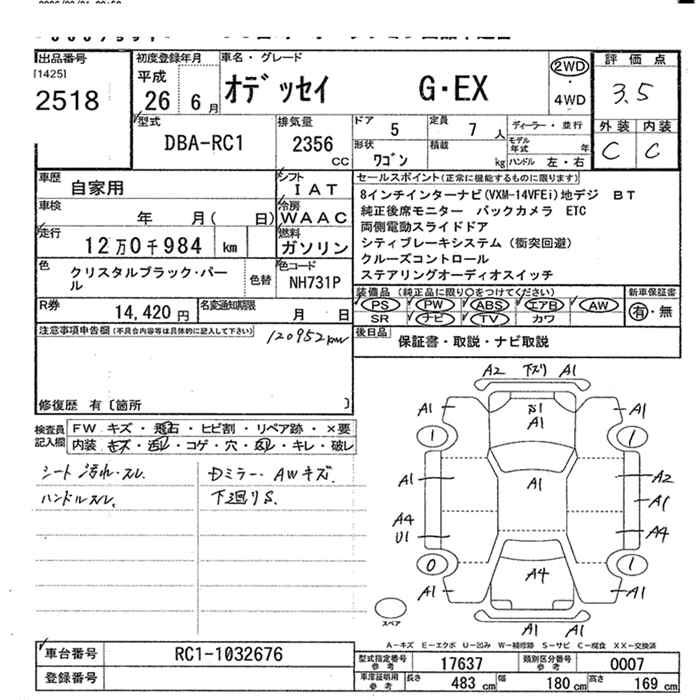 出品番号
[1425]
2518
初度登録年月
平成
26 6 月
車名・グレード
オデッセイ G・EX
2WD
・
4WD
評価点
3.5
外装 内装
C C
型式
DBA-RC1
排気量
2356
CC
ドア 5
定員 7 人
形状 ワゴン
積載 kg
ディーラー・並行
モデル年式 年
ハンドル 左・右
車歴
自家用
シフト
IAT
車検
年 月( 日)
冷房
WAAC
走行
12万0千984 km
燃料
ガソリン
色
クリスタルブラック・パール
色替
色コード
NH731P
R券
14,420 円
名変通知期限
月 日
セールスポイント(正常に機能するものに限ります)
8インチインターナビ(VXM-14VFEi)地デジ BT
純正後席モニター バックカメラ ETC
両側電動スライドドア
シティブレーキシステム (衝突回避)
クルーズコントロール
ステアリングオーディオスイッチ
装備品(純正品に限り○をつけてください)
PS PW ABS エアB AW
SR ナビ TV カワ
新車保証書
有・無
後日品
保証書・取説・ナビ取説
注意事項申告欄(不具合内容等は具体的に記入して下さい)
120952km
修復歴 有〔箇所 〕
検査員記入欄
FW キズ・飛石・ヒビ割・リペア跡・×要
内装 キズ・汚レ・コゲ・穴・スレ・キレ・破レ
シート汚れ・スレ
ハンドルスレ
Dミラー・AWキズ
下廻りS
A2 下ズリ A1
A1 A1
A1
1 1
A1 A1 A2
A1
A4 A4
U1
0 1
A4
A1 A1
A1 A1
スペア
A-キズ E-エクボ U-凹み W-補修跡 S-サビ C-腐食 XX-交換済
車台番号
RC1-1032676
登録番号
型式指定番号参考
17637
類別区分番号参考
0007
車庫証明用参考
長さ 483 cm 幅 180 cm 高さ 169 cm